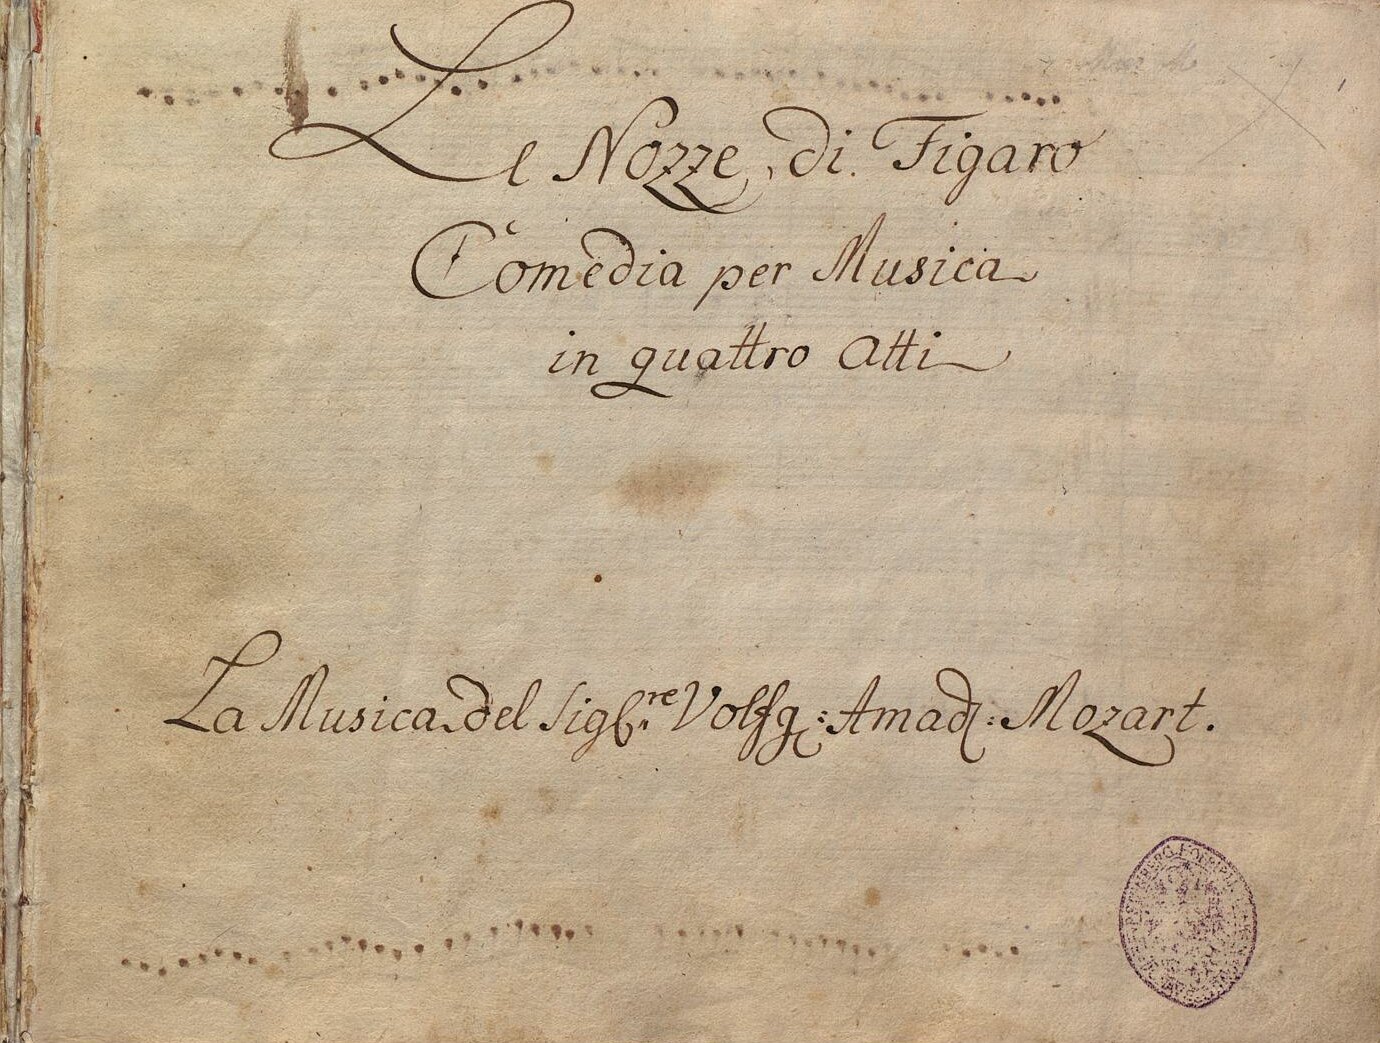 Le Nozze di Figaro
Comedia per Musica
in quattro Atti
La Musica del Sigl:re Volfg: Amad: Mozart.